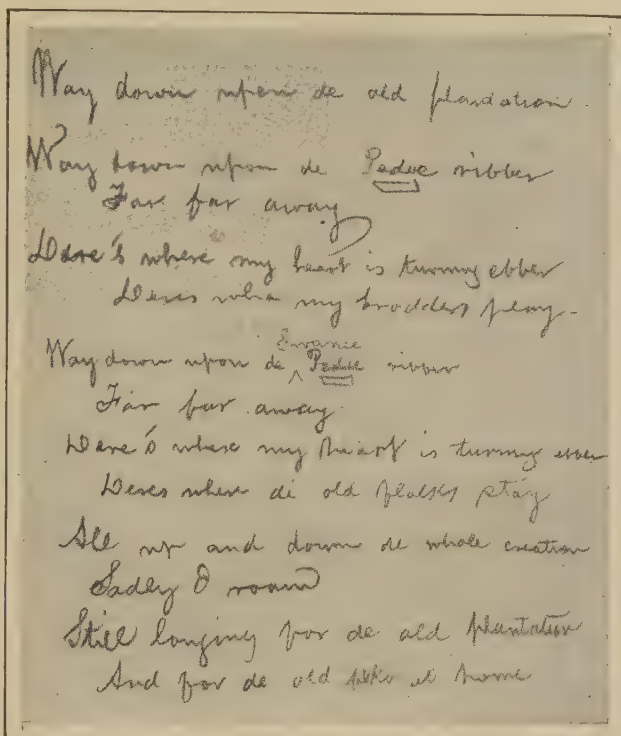 Way down upon de old plandation
Way down upon de Pedee ribber
Far far away
Dere's where my heart is turning ebber
Deres wha my brodders play
Way down upon de Pedee ribber
Swanee
Far far away
Dere's where my heart is turning ebber
Deres where de old folkes stay
All up and down de whole creation
Sadly I roam
Still longing for de old plantation
And for de old folks at home